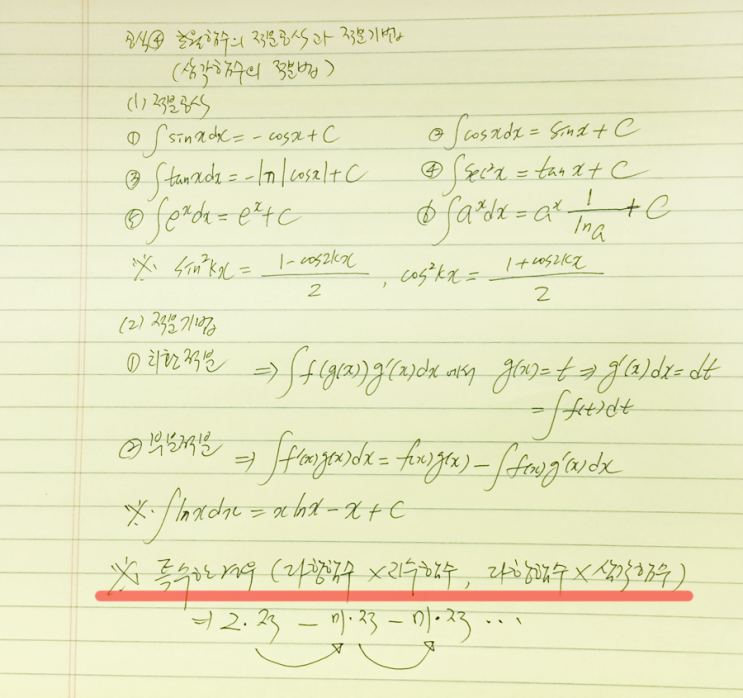 공식④ 초월함수의 적분공식과 적분기법
(삼각함수의 적분법)
(1) 적분공식
① ∫sinxdx = -cosx + C ② ∫cosxdx = sinx + C
③ ∫tanxdx = -ln|cosx| + C ④ ∫sec²x = tanx + C
⑤ ∫eˣdx = eˣ + C ⑥ ∫aˣdx = aˣ 1/lna + C
※ sin²kx = (1-cos2kx)/2 , cos²kx = (1+cos2kx)/2
(2) 적분기법
① 치환적분 ⇒ ∫f(g(x))g'(x)dx 에서 g(x)=t ⇒ g'(x)dx=dt
= ∫f(t)dt
② 부분적분 ⇒ ∫f'(x)g(x)dx = f(x)g(x) - ∫f(x)g'(x)dx
※ ∫lnxdx = xlnx - x + C
※ 특수한 경우 (다항함수 × 지수함수, 다항함수 × 삼각함수)
⇒ 2.적 - 미.적 - 미.적 ...